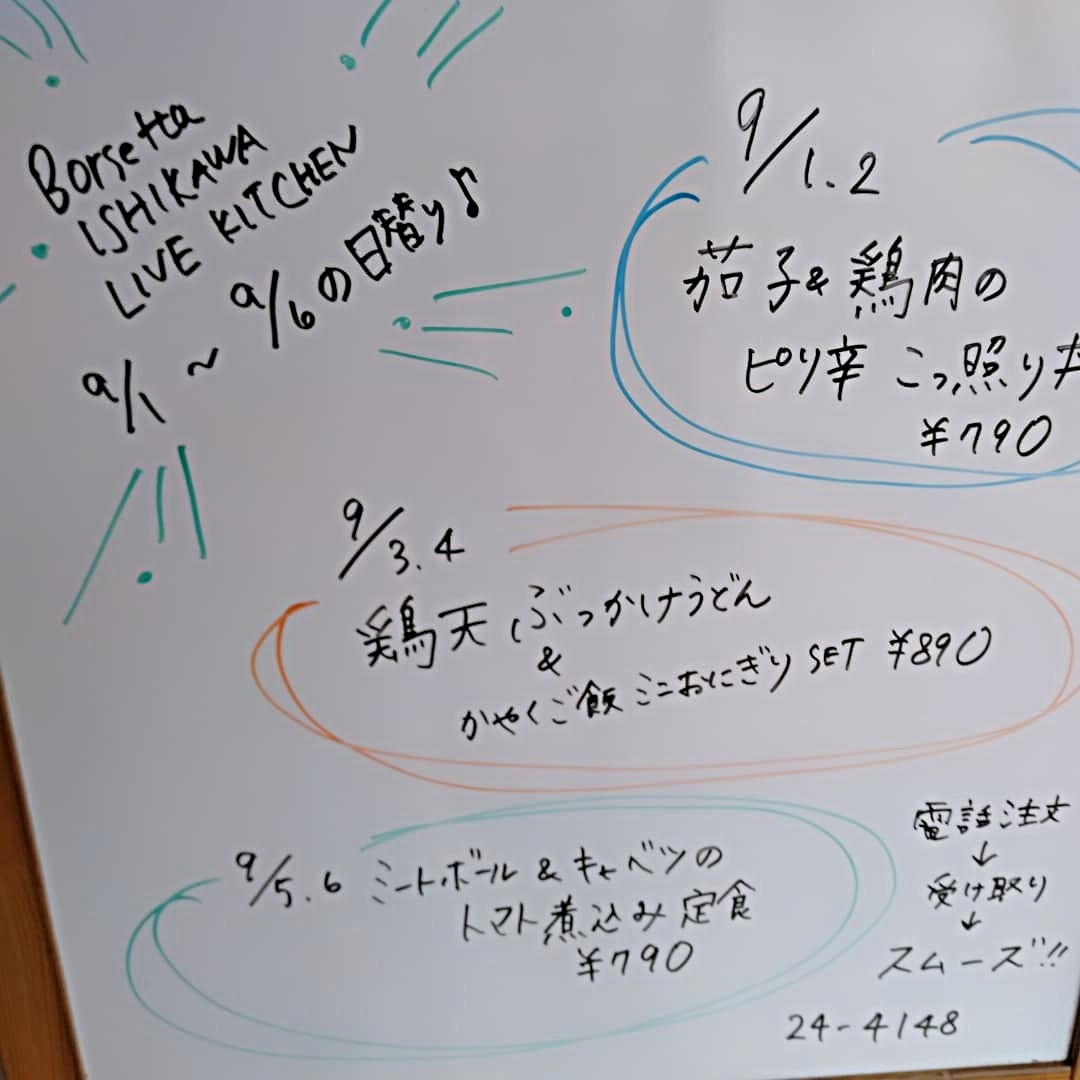 Borsetta
ISHIKAWA
LIVE KITCHEN
9/1 ~ 9/6の日替り♪
9/1.2
茄子&鶏肉の
ピリ辛 こっ照り丼
¥790
9/3.4
鶏天 ぶっかけうどん
&
かやくご飯 ミニおにぎり SET ¥890
9/5.6 ミートボール & キャベツの
トマト煮込み定食
¥790
電話注文
↓
受け取り
↓
スムーズ!!
24-4148